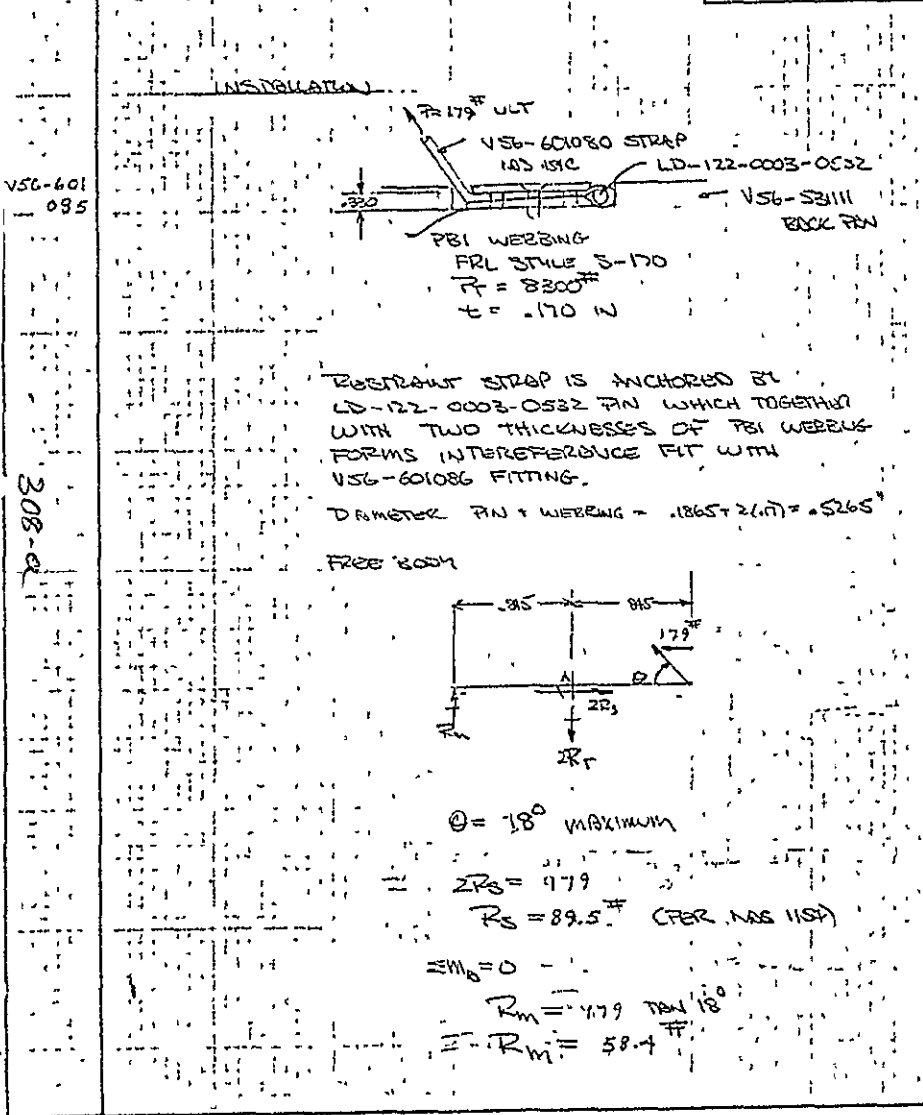 INSTALLATION
P=179# ULT
V56-601080 STRAP
LD-122-0003-0532
V56-601
085
.330
V56-531111
BACK PAN
PBI WEBBING
FRL STYLE S-170
PT = 8300#
t = .170 IN
RESTRAINT STRAP IS ANCHORED BY
LD-122-0003-0532 PIN WHICH TOGETHER
WITH TWO THICKNESSES OF PBI WEBBING
FORMS INTEREFERENCE FIT WITH
V56-601086 FITTING.
DIAMETER PIN + WEBBING = .1865+2(.17)= .5265"
308-a
FREE BODY
179#
θ
A
2Rs
Rm
2RT
θ = 18° MAXIMUM
2Rs = 179
Rs = 89.5# (PER NAS
= 0
Rm = 179 TAN 18°
Rm = 58.4#